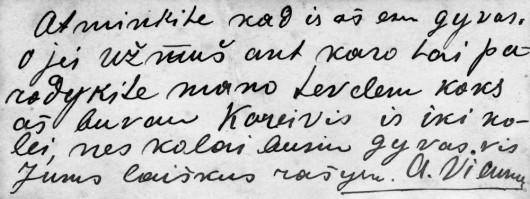 Atminkite kad is aš esu gyvas.
O jei užmuš ant karo tai pa
rodykite mano tevelem koks
aš buvau Kareivis is iki ko-
lei, nes kolai busiu gyvas vis
Jums laiškus rašysu. A.